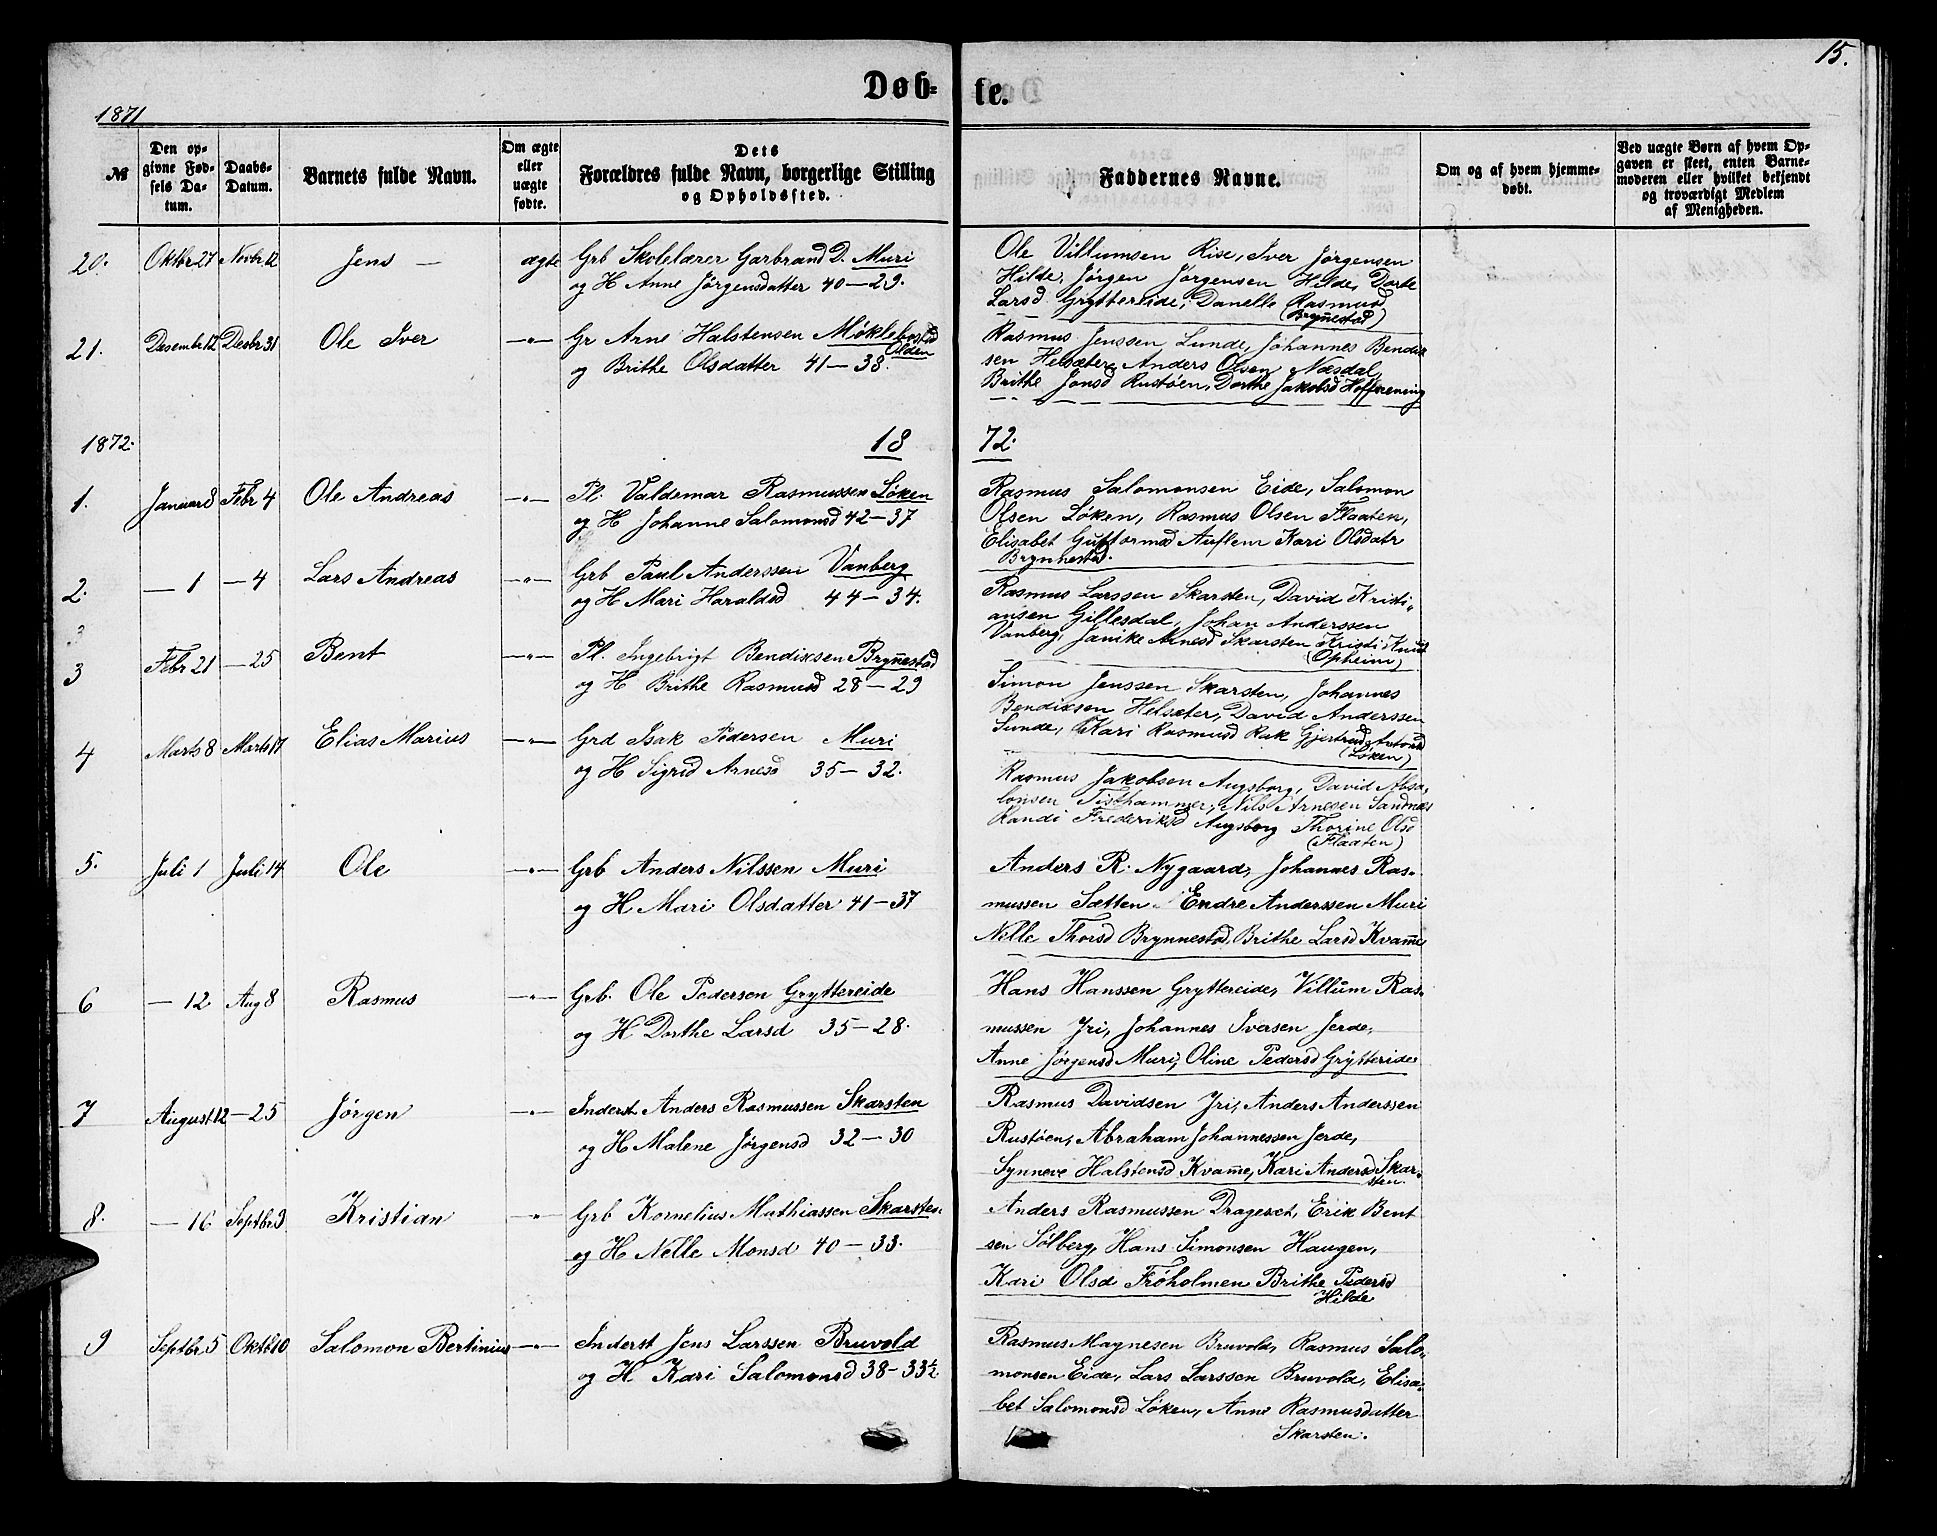 15.
Døb- te.
1871
№
Den opgivne Fødsels Datum.
Daabs-Datum.
Barnets fulde Navn.
Om ægte eller uægte fødte.
Dets Forældres fulde Navn, borgerlige Stilling og Opholdssted.
Faddernes Navne.
Om og af hvem hjemmedøbt.
Ved uægte Børn af hvem Opgaven er skeet, enten Barnemoderen eller hvilket bekjendt og troværdigt Medlem af Menigheden.
20. Oktbr 27 Novbr 12 Jens — ægte Grb Skolelærer Garbrand D. Muri
og H Anne Jørgensdatter 40—29.
Ole Villumsen Rise, Iver Jørgensen
Hilde, Jørgen Jørgensen Hilde, Dorte
Larsd Gryttereide, Danelle Rasmusd
(Brynnestad)
21. Desembr 12 Desbr 31 Ole Iver —"— Gr Arne Halstensen Møklebostad
Olden
og Brithe Olsdatter 41—38.
Rasmus Jenssen Lunde, Johannes Bendik
sen Helsæter, Anders Olsen Næsdal,
Brithe Jonsd Rustøen, Dorthe Jakobsd Hoffrening
1872. 18 72.
1. Januar 8 Febr 4 Ole Andreas —"— Pl. Valdemar Rasmussen Løken
og H Johanne Salomonsd 42—37
Rasmus Salomonsen Eide, Salomon
Olsen Løken, Rasmus Olsen Flaaten,
Elisabet Guttormsd Auflem Kari Olsdatr
Brynnestad.
2. — 1 — 4 Lars Andreas —"— Grb Paul Anderssen Vanberg
og H Mari Haraldsd 44—34.
Rasmus Larssen Skarsten, David Kristi-
ansen Gillesdal, Johan Anderssen
Vanberg, Janike Arnesd Skarsten Kristi Knuts
(Opheim)
3
3 Febr 21 — 25 Bent —"— Pl. Ingebrigt Bendiksen Brynnestad
og H Brithe Rasmusd 28—29
Simon Jenssen Skarsten, Johannes
Bendiksen Helsæter, David Anderssen
Lunde, Mari Rasmusd Rak Gjertrud Antonsd
(Løken)
4 Marts 8 Marts 17 Elias Marius —"— Grd Isak Pedersen Muri
og H Sigrid Arnesd 35—32.
Rasmus Jakobsen Augsborg, David Absa-
lonsen Tisthammer, Nils Arnesen Sandnes
Randi Frederiksd Augsborg Thorine Olsd
(Flaaten)
5. Juli 1 Juli 14 Ole —"— Grb Anders Nilssen Muri
og H Mari Olsdatter 41—37
Anders R. Nygaard, Johannes Ras-
mussen Sætten, Endre Anderssen Muri
Nelle Thorsd Brynnestad, Brithe Larsd Kvamme
6 — 12 Aug 8 Rasmus —"— Grb. Ole Pedersen Gryttereide
og H Dorthe Larsd 35—28.
Hans Hanssen Gryttereide, Villum Ras-
mussen Iri, Johannes Iversen Jerde,
Anne Jørgensd Muri, Oline Pedersd Gryttereide
7 August 12 — 25 Jørgen —"— Inderst Anders Rasmussen Skarsten
og H Malene Jørgensd 32—30
Rasmus Davidsen Iri, Anders Anderssen
Rustøen, Abraham Johannessen Jerde,
Synneve Halstensd Kvamme, Kari Andersd Skar-
sten.
8. — 16 Septbr 3 Kristian —"— Grb Kornelius Mathiassen Skarsten
og H Nelle Monsd 40—33.
Anders Rasmussen Drageset, Erik Bent
sen Solberg, Hans Simonsen Haugen,
Kari Olsd Frøholmen Brithe Pedersd
Hilde
9 Septbr 5 Oktb 10 Salomon Bertinius —"— Inderst Jens Larssen Bruvold
og H Kari Salomonsd 38—33½
Rasmus Magnesen Bruvold, Rasmus Salo-
monsen Eide, Lars Larssen Bruvold, Elisa-
bet Salomonsd Løken, Anne Rasmusdatter
Skarsten.